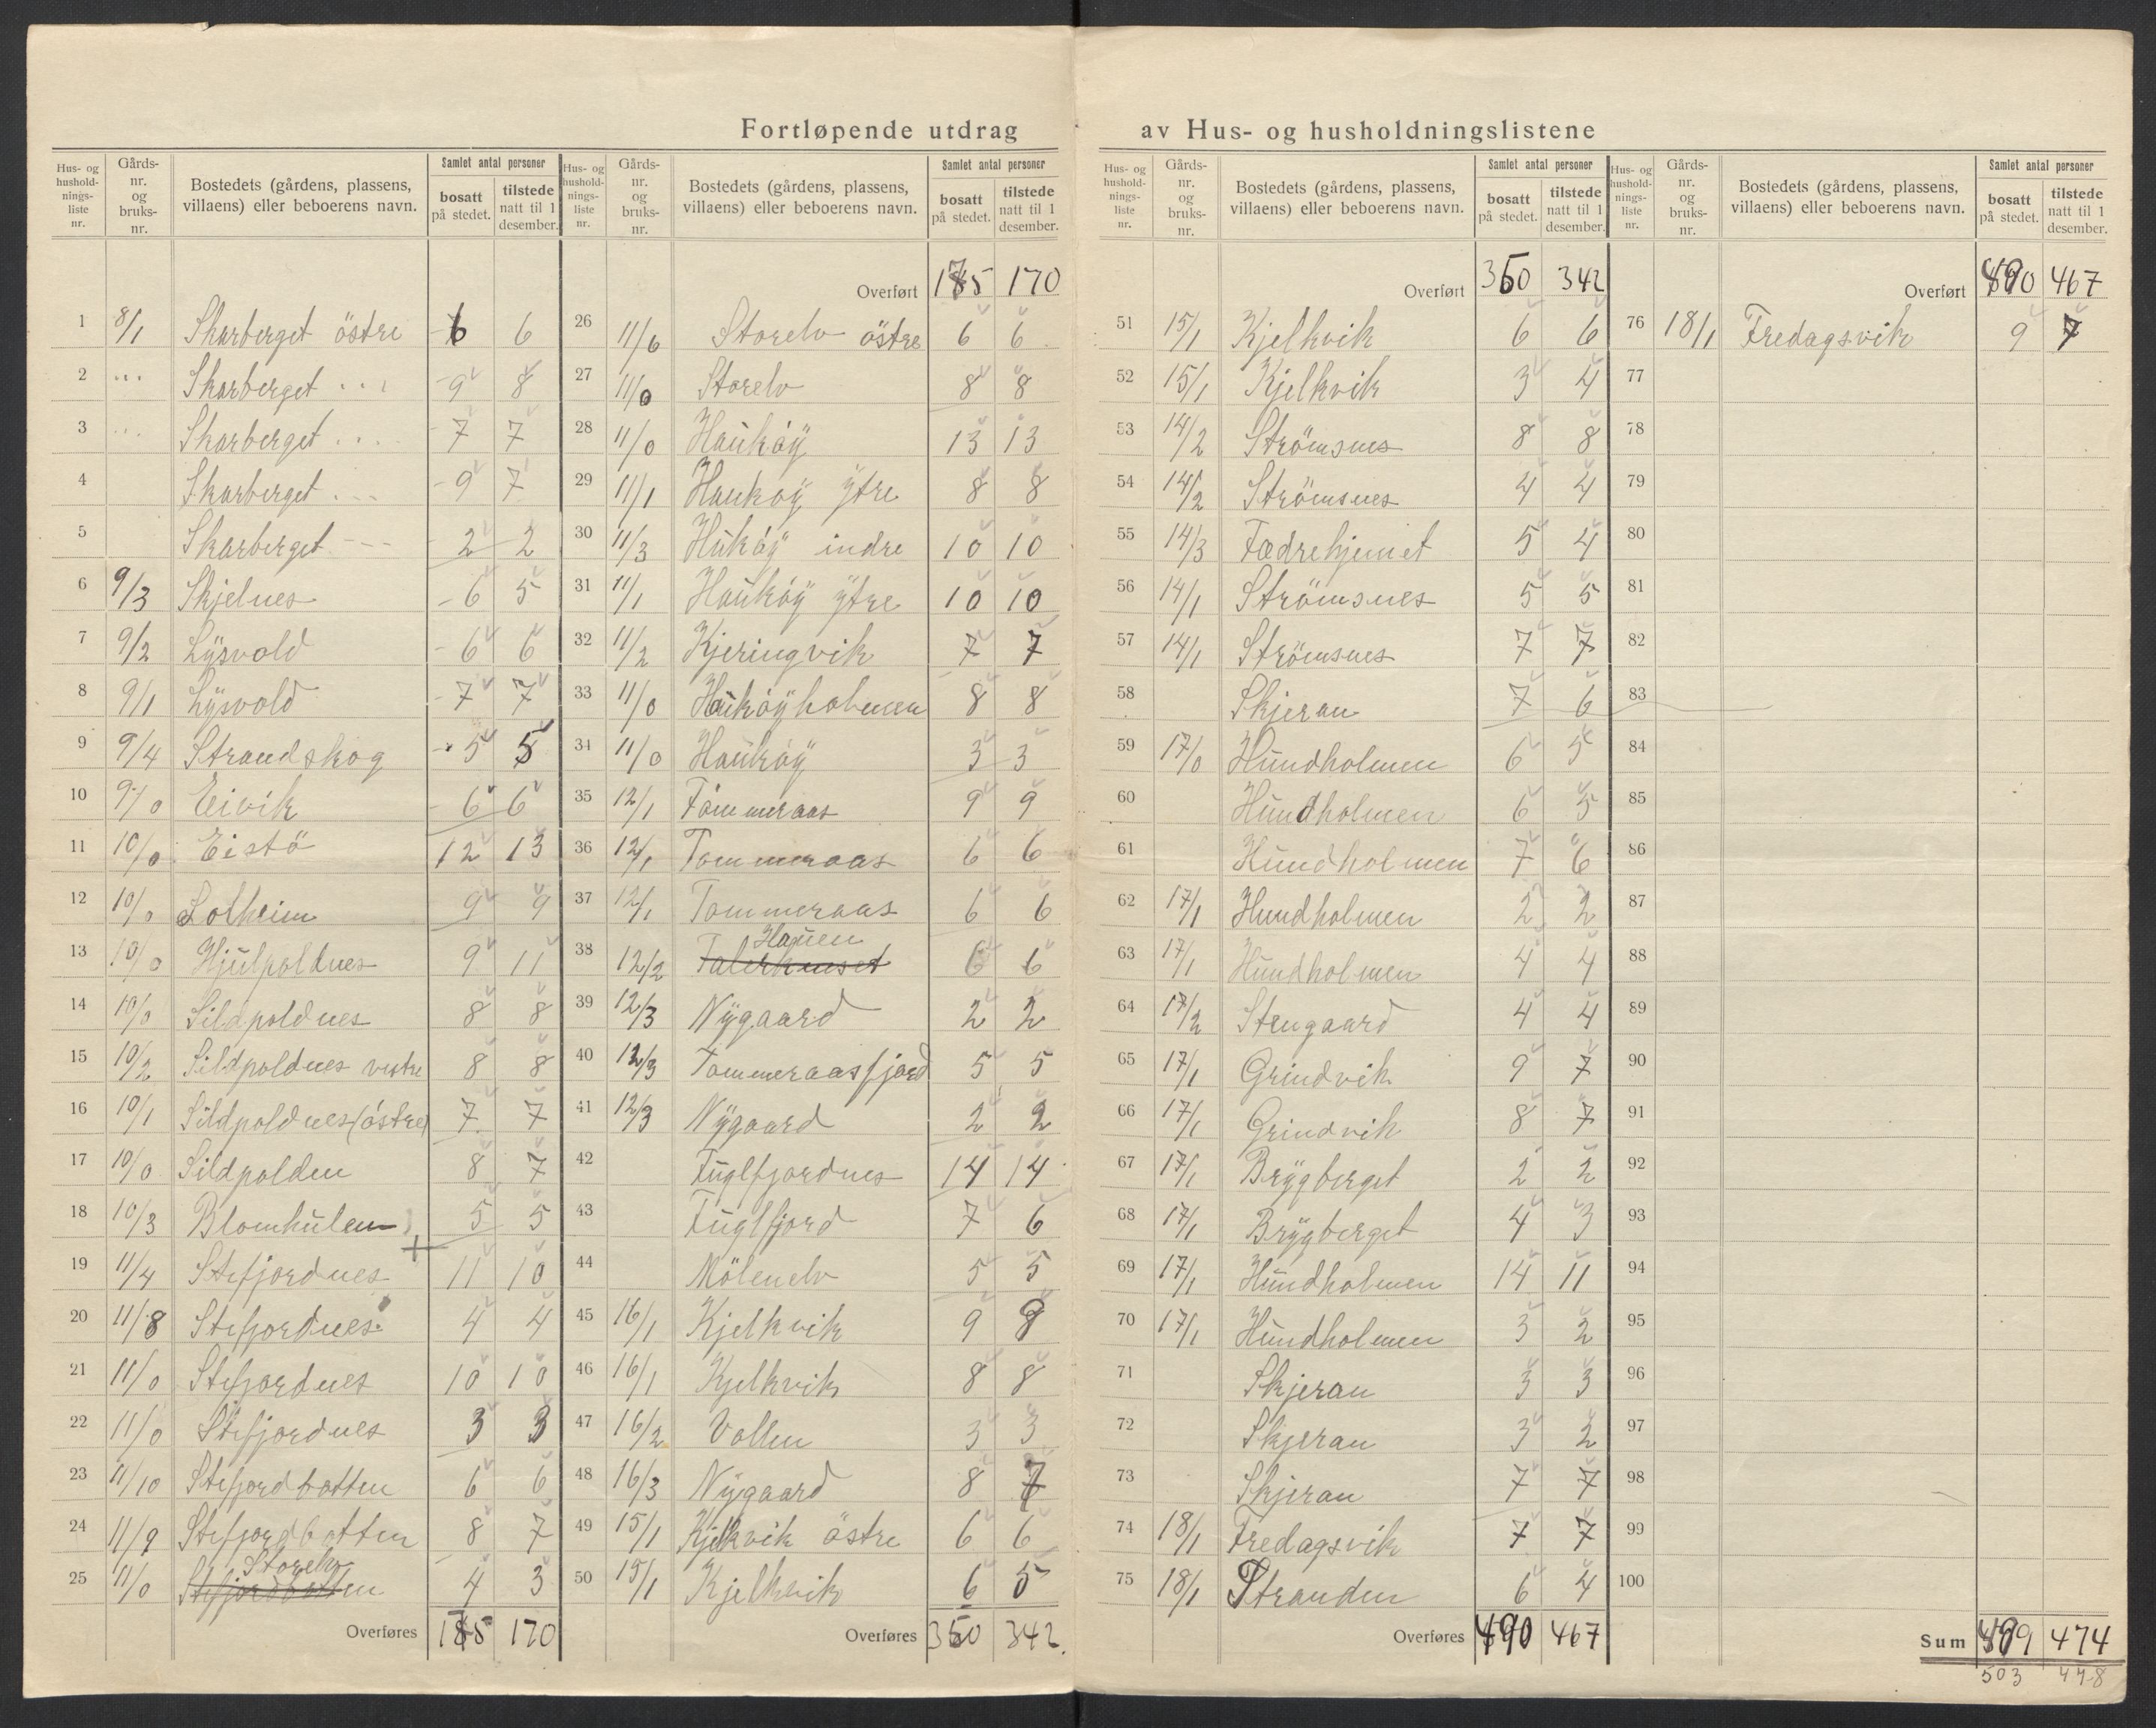 Fortløpende utdrag av Hus- og husholdningslistene
Hus- og hushold- nings- liste nr. Gårds- nr. og bruks- nr. Bostedets (gårdens, plassens, villaens) eller beboerens navn. Samlet antal personer bosatt på stedet. tilstede natt til 1 desember.
1 8/1 Skarberget östre 6 6
2 ... Skarberget ... 9 8
3 ... Skarberget .... 7 7
4 Skarberget ... 9 7
5 Skarberget --- 2 2
6 9/3 Skjelnes 6 5
7 9/2 Lysvold 6 6
8 9/1 Lysvold 7 7
9 9/4 Strandskog 5 5
10 9/0 Eivik 6 6
11 10/0 Eistö 12 13
12 10/0 Lotheim 9 9
13 10/0 Hjulpoldnes 9 11
14 10/0 Sildpoldnes 8 8
15 10/2 Sildpoldnes vestre 8 8
16 10/1 Sildpoldnes (östre) 7 7
17 10/0 Sildpolden 8 7
18 10/3 Blomhulen 5 5
19 11/4 Stefjordnes 11 10
20 11/8 Stefjordnes 4 4
21 11/0 Stefjordnes 10 10
22 11/0 Stefjordnes 3 3
23 11/10 Stefjordbotten 6 6
24 11/9 Stefjordbotten 8 7
Storelv
25 11/0 Stefjordbotten 4 3
Overføres 175 170
Hus- og hushold- nings- liste nr. Gårds- nr. og bruks- nr. Bostedets (gårdens, plassens, villaens) eller beboerens navn. Samlet antal personer bosatt på stedet. tilstede natt til 1 desember.
Overført 175 170
26 11/6 Storelv östre 6 6
27 11/0 Storelv 8 8
28 11/0 Haukøy 13 13
29 11/1 Haukøy ytre 8 8
30 11/3 Hukøy indre 10 10
31 11/1 Haukøy ytre 10 10
32 11/2 Kjeringvik 7 7
33 11/0 Haukøyholmen 8 8
34 11/0 Haukøy 3 3
35 12/1 Tömmeraas 9 9
36 12/1 Tommeraas 6 6
37 12/1 Tommeraas 6 6
Haugen
38 12/2 6 6
39 12/3 Nygaard 2 2
40 12/3 Tommeraasfjord 5 5
41 12/3 Nygaard 2 2
42 Fuglfjordnes 14 14
43 Fuglfjord 7 6
44 Mölnelv 5 5
45 16/1 Kjelkvik 9 9
46 16/1 Kjelkvik 8 8
47 16/2 Vollen 3 3
48 16/3 Nygaard 8 7
49 15/1 Kjelkvik östre 6 6
50 15/1 Kjelkvik 6 5
Overføres 350 342
Hus- og hushold- nings- liste nr. Gårds- nr. og bruks- nr. Bostedets (gårdens, plassens, villaens) eller beboerens navn. Samlet antal personer bosatt på stedet. tilstede natt til 1 desember.
Overført 350 342
51 15/1 Kjelkvik 6 6
52 15/1 Kjelkvik 3 4
53 14/2 Strömsnes 8 8
54 14/2 Strömsnes 4 4
55 14/3 Fædrehjemet 5 4
56 14/1 Strömsnes 5 5
57 14/1 Strömsnes 7 7
58 Skjeran 7 6
59 17/0 Hundholmen 6 5
60 Hundholmen 6 5
61 Hundholmen 7 6
62 17/1 Hundholmen 2 2
63 17/1 Hundholmen 4 4
64 17/2 Stengaard 4 4
65 17/1 Grindvik 9 7
66 17/1 Grindvik 8 7
67 17/1 Brygberget 2 2
68 17/1 Brygberget 4 3
69 17/1 Hundholmen 14 11
70 17/1 Hundholmen 3 2
71 Skjeran 3 3
72 Skjeran 3 2
73 Skjeran 7 7
74 18/1 Fredagsvik 7 7
75 18/1 Stranden 6 4
Overføres 490 467
Hus- og hushold- nings- liste nr. Gårds- nr. og bruks- nr. Bostedets (gårdens, plassens, villaens) eller beboerens navn. Samlet antal personer bosatt på stedet. tilstede natt til 1 desember.
Overført 490 467
76 18/1 Fredagsvik 9 7
77
78
79
80
81
82
83
84
85
86
87
88
89
90
91
92
93
94
95
96
97
98
99
100
Sum 499 474
503 478